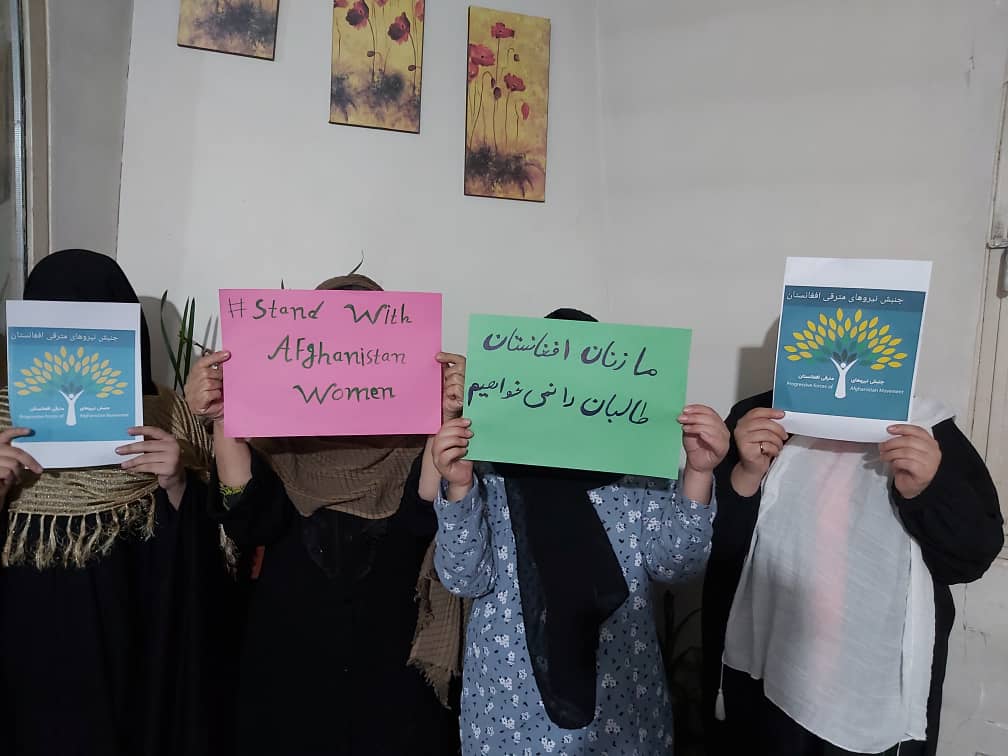 جنبش نیروهای مترقی افغانستان
جنبش نیروهای مترقی افغانستان
Progressive Forces of Afghanistan Movement
# Stand With
Afghanistan
Women
ما زنان افغانستان
طالبان را نمی خواهیم
جنبش نیروهای مترقی افغانستان
جنبش نیروهای مترقی افغانستان
Progressive Forces of Afghanistan Movement